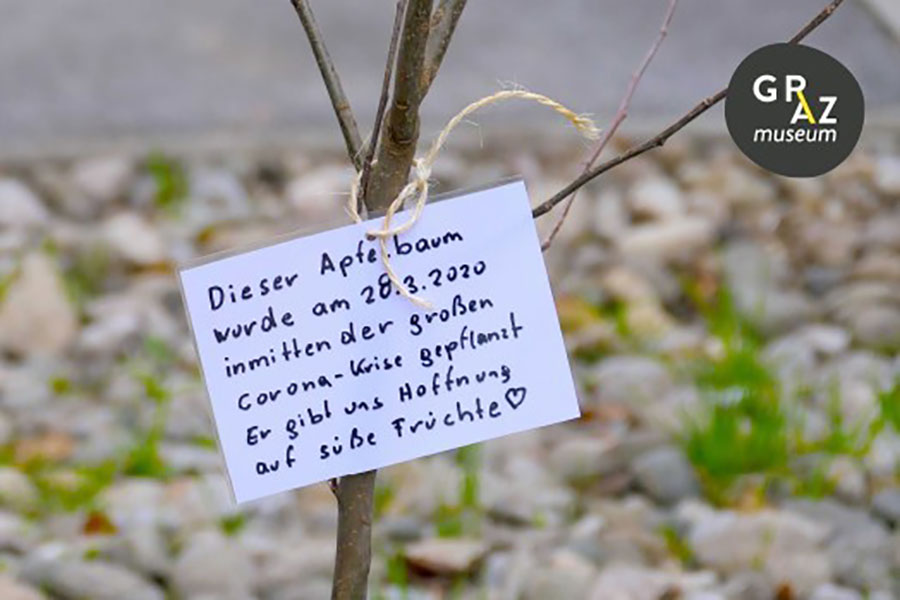 GRAZ
museum
Dieser Apfelbaum
wurde am 28.3.2020
inmitten der großen
Corona-Krise gepflanzt
Er gibt uns Hoffnung
auf süße Früchte♡